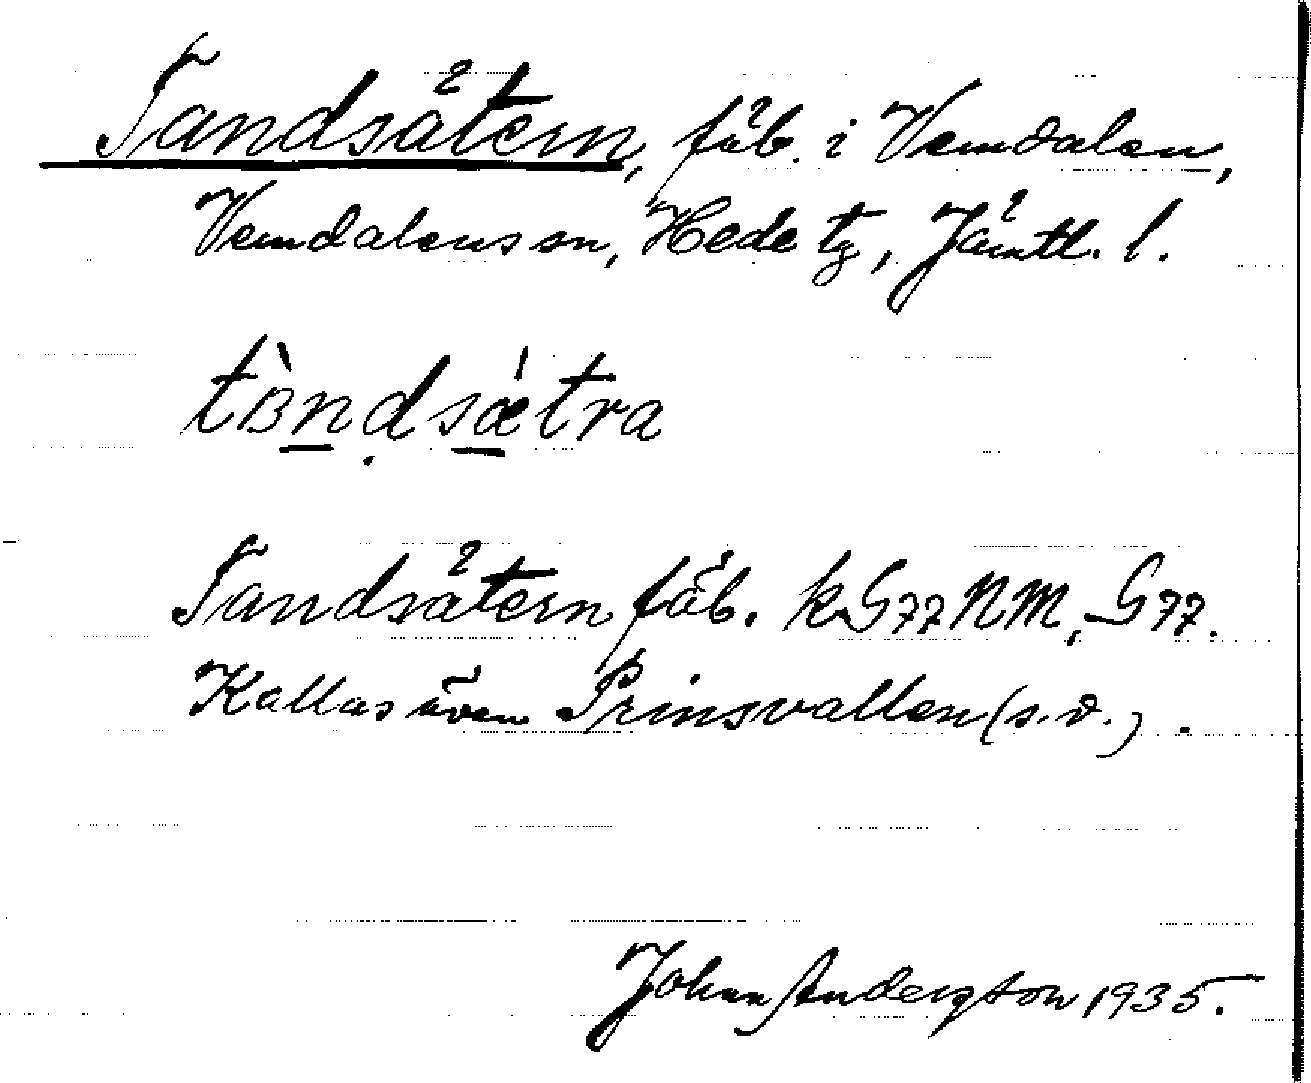 Tandsätern, fäb. i Vemdalen,
Vemdalens sn, Hede tg, Jämtl. l.
tàndsǽtra
Tandsätern fäb. kG77NM, G77.
Kallas även Prinsvallen (s. d.).
Johan Andersson 1935.